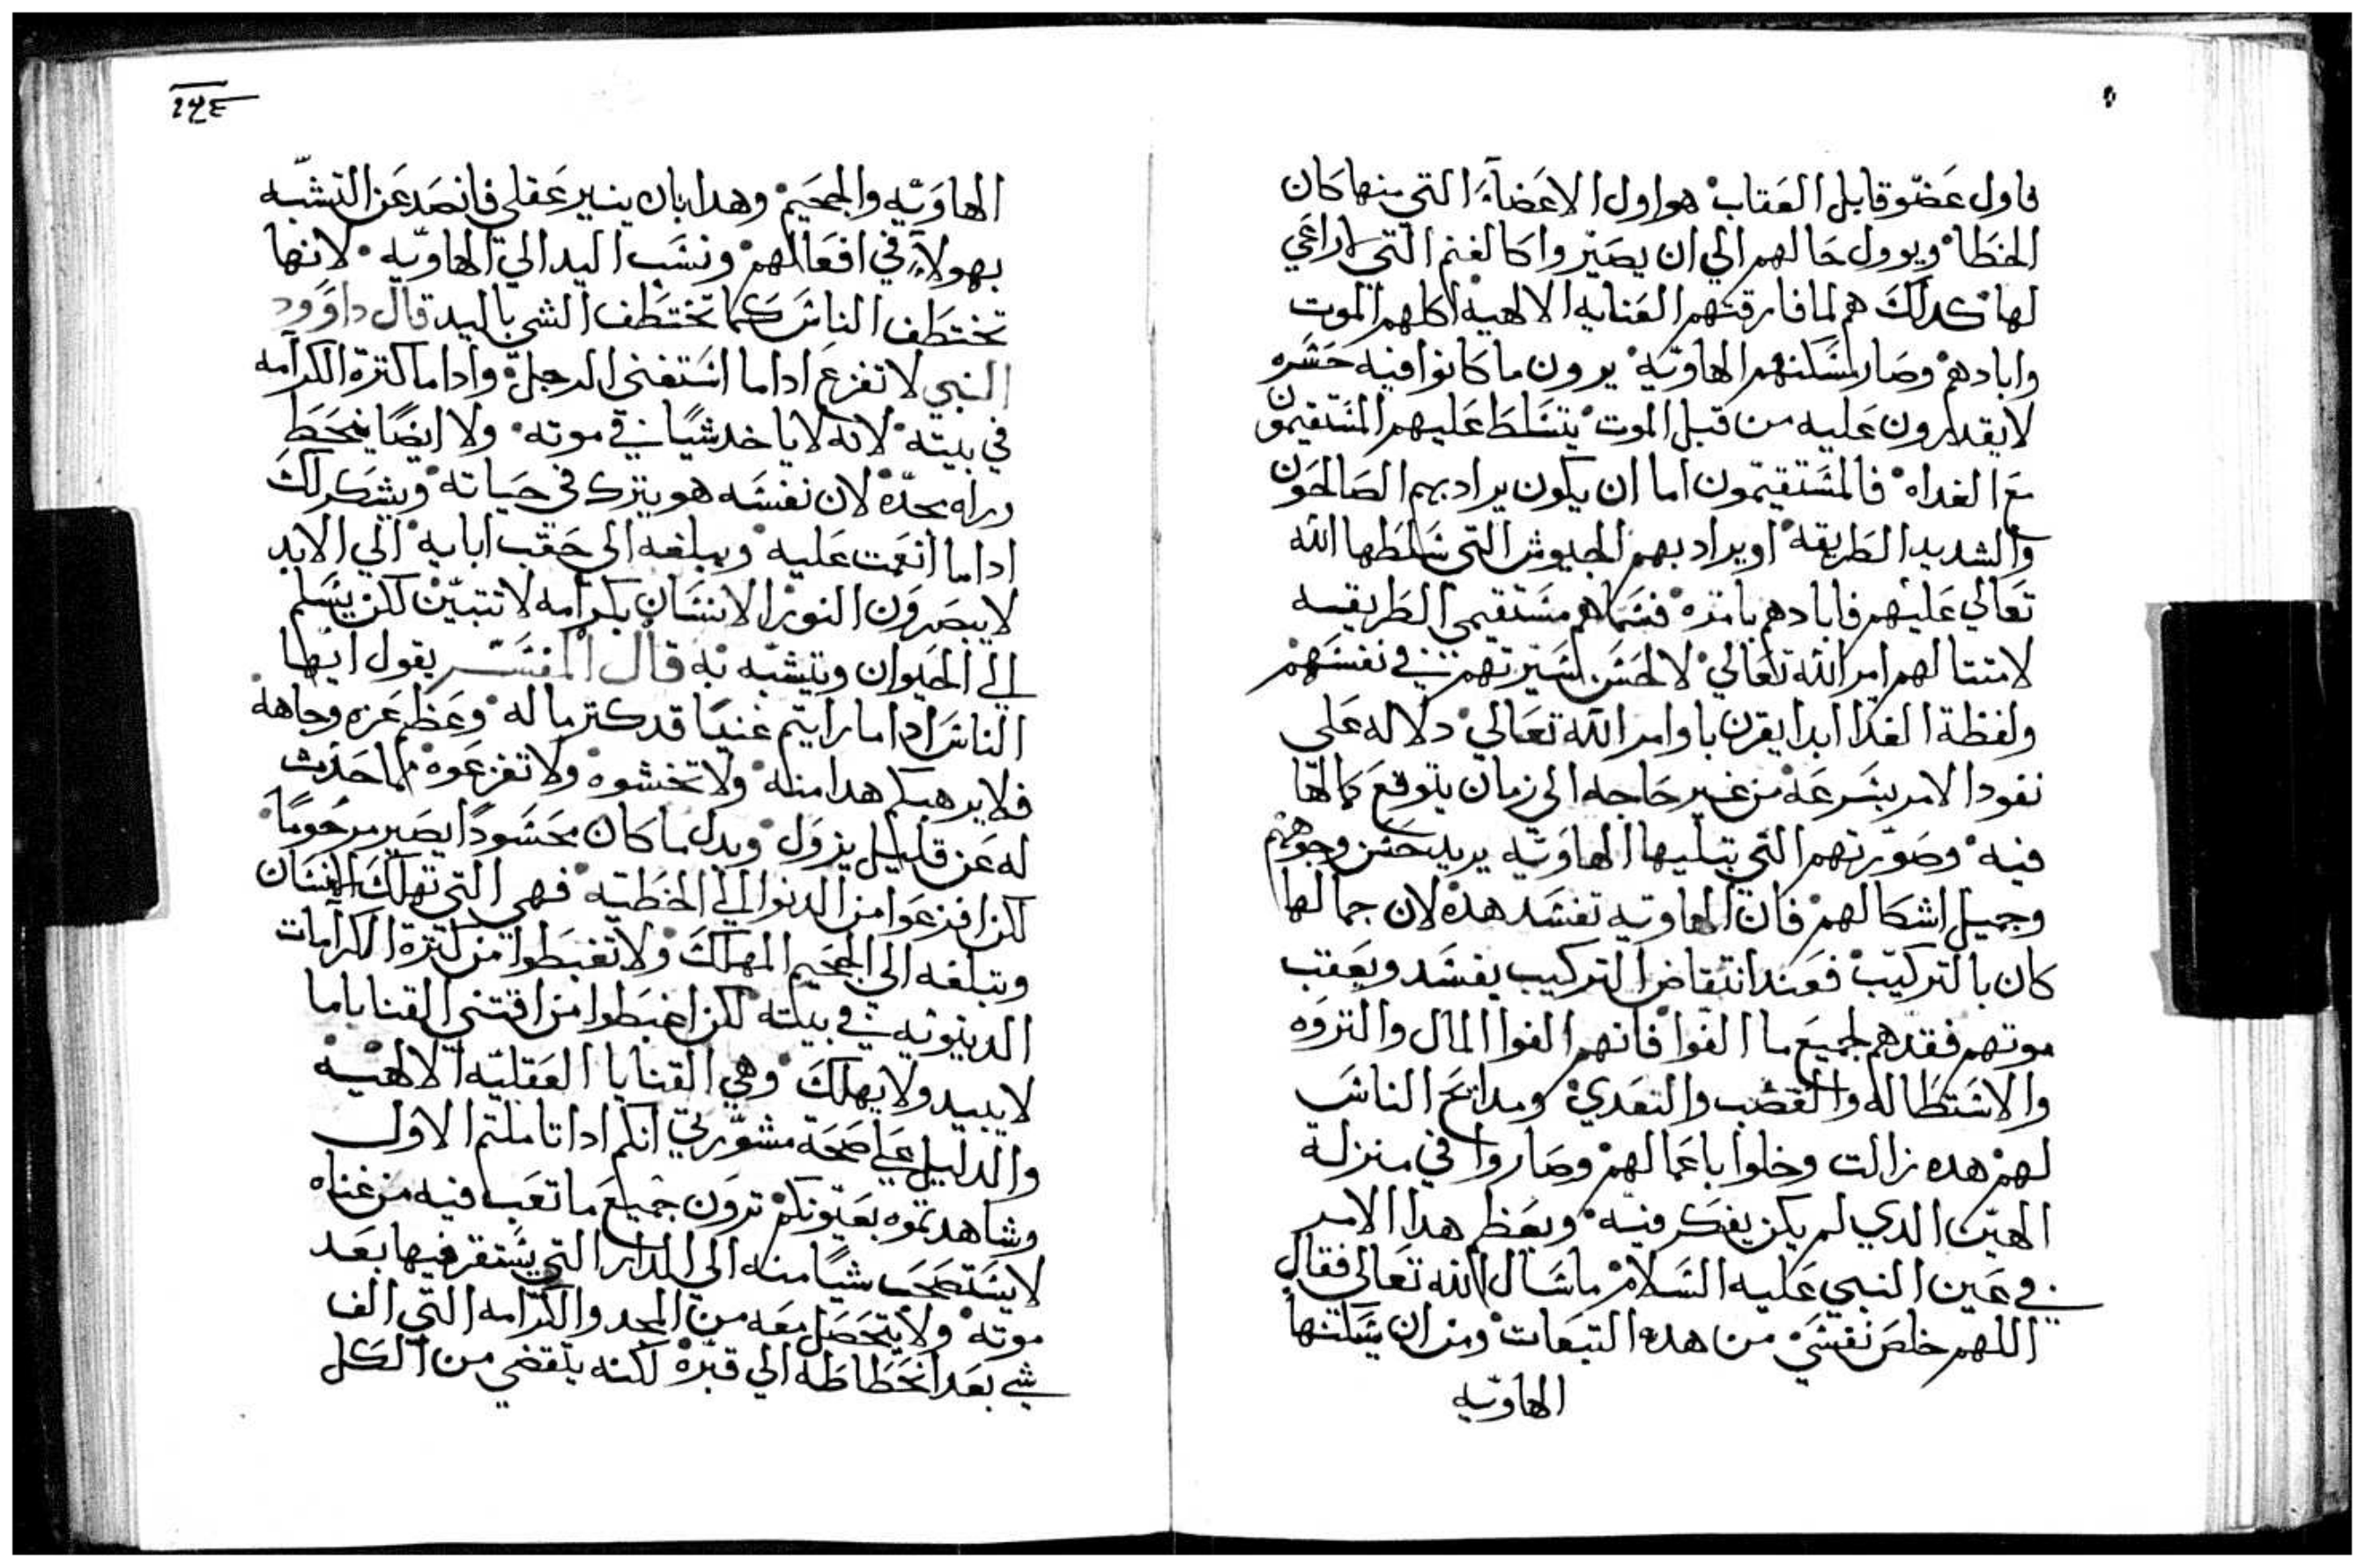 فاول عضو قابل العقاب هو اول الاعضآء التي منها كان
الخطا ويوول حالهم الي ان يصيروا كالغنم التي لا راعي
لها كدلك هم لما فارقتهم العنايه الالهيه اكلهم الموت
وابادهم وصار مسكنهم الهاويه يرون ما كانوا فيه حسره
لا يقدرون عليه من قبل الموت يتسلط عليهم المستقيمون
مع الغداه فالمستقيمون اما ان يكون يراد بهم الصالحون
والشديد الطريقه او يراد بهم الجيوش التي سلطها الله
تعالي عليهم فابادهم بامره فسماهم مستقيمي الطريقه
لامتتالهم امر الله تعالي لا لحسن سيرتهم في نفسهم
ولفظة الغدا ابدا يقرن باوامر الله تعالي دلاله علي
نفود الامر بسرعه من غير حاجه الي زمان يتوقع كمالها
فيه وصورتهم التي تبليها الهاويه يريد حسن وجوههم
وجميل اشكالهم فان الهاويه تفسد هده لان جمالها
كان بالتركيب فعند انتقاض التركيب يفسد ويعقب
موتهم فقدهم لجميع ما الفوا فانهم الفوا المال والتروه
والاستطاله والغضب والتعدي ومدائح الناس
لهم هده زالت وخلوا باعمالهم وصاروا في منزلة
الهين الدي لم يكن يفكر فيه ويعظم هدا الامر
في عين النبي عليه السلام ما سال الله تعالي فقال
اللهم خلص نفسي من هده التبعات ومن ان يسكنها
الهاويه
الهاويه والجحيم وهدا بان ينير عقلي فانصد عن التشبه
بهولآء في افعالهم ونسب اليد الي الهاويه لانها
تختطف الناس كما تختطف الشي باليد قال داوود
النبي لا تفزع اداما استغني الرجل واداما كترة الكرامه
في بيته لانه لا ياخد شيا في موته ولا ايضا ينحط
وراه مجده لان نفسه هو يترك في حياته ويشكرلك
اداما انعمت عليه ويبلغه الي حقب ابايه الي الابد
لا يبصرون النور الانسان بكرامه لا تتبين لكن يسلم
الي الحيوان وتيشبه به قال المفسر يقول ايها
الناس اداما رايتم غنيا قد كتر ماله وعظم عزه وجاهه
فلا يرهبكم هدا منه ولا تخشوه ولا تفزعوه فما حدت
له عن قليل يزول وبدل ما كان محسودا يصير مرحوما
لكن افزعوا من الدنوا الي الخطيه فهي التي تهلك الانسان
وتبلغه الي الجحيم المهلك ولا تغبطوا من كترة الكرامات
الدينويه في بيته لكن اغبطوا من اقتني القنايا ما
لا يبيد ولا يهلك وهي القنايا العقليه الالهيه
والدليل علي صحة مشورتي انكم ادا تاملتم الاول
وشاهدتموه بعيونكم ترون جميع ما تعب فيه من غناه
لا يستصحب شيا منه الي الدار التي يستقر فيها بعد
موته ولا يتحصل معه من المجد والكرامه التي الف
شي بعد انحطاطه الي قبره لكنه يتقضي من الكل